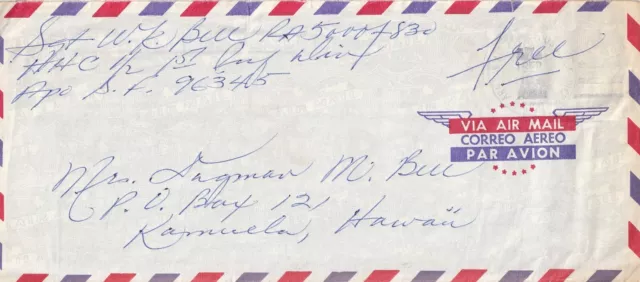 Sgt W.K. Bell RA50007830
HHC 1/2 1st Inf Div
Apo S.F. 96345
Free
VIA AIR MAIL
CORREO AEREO
PAR AVION
Mrs. Dagman M. Bell
P.O. Box 121
Kamuela, Hawaii